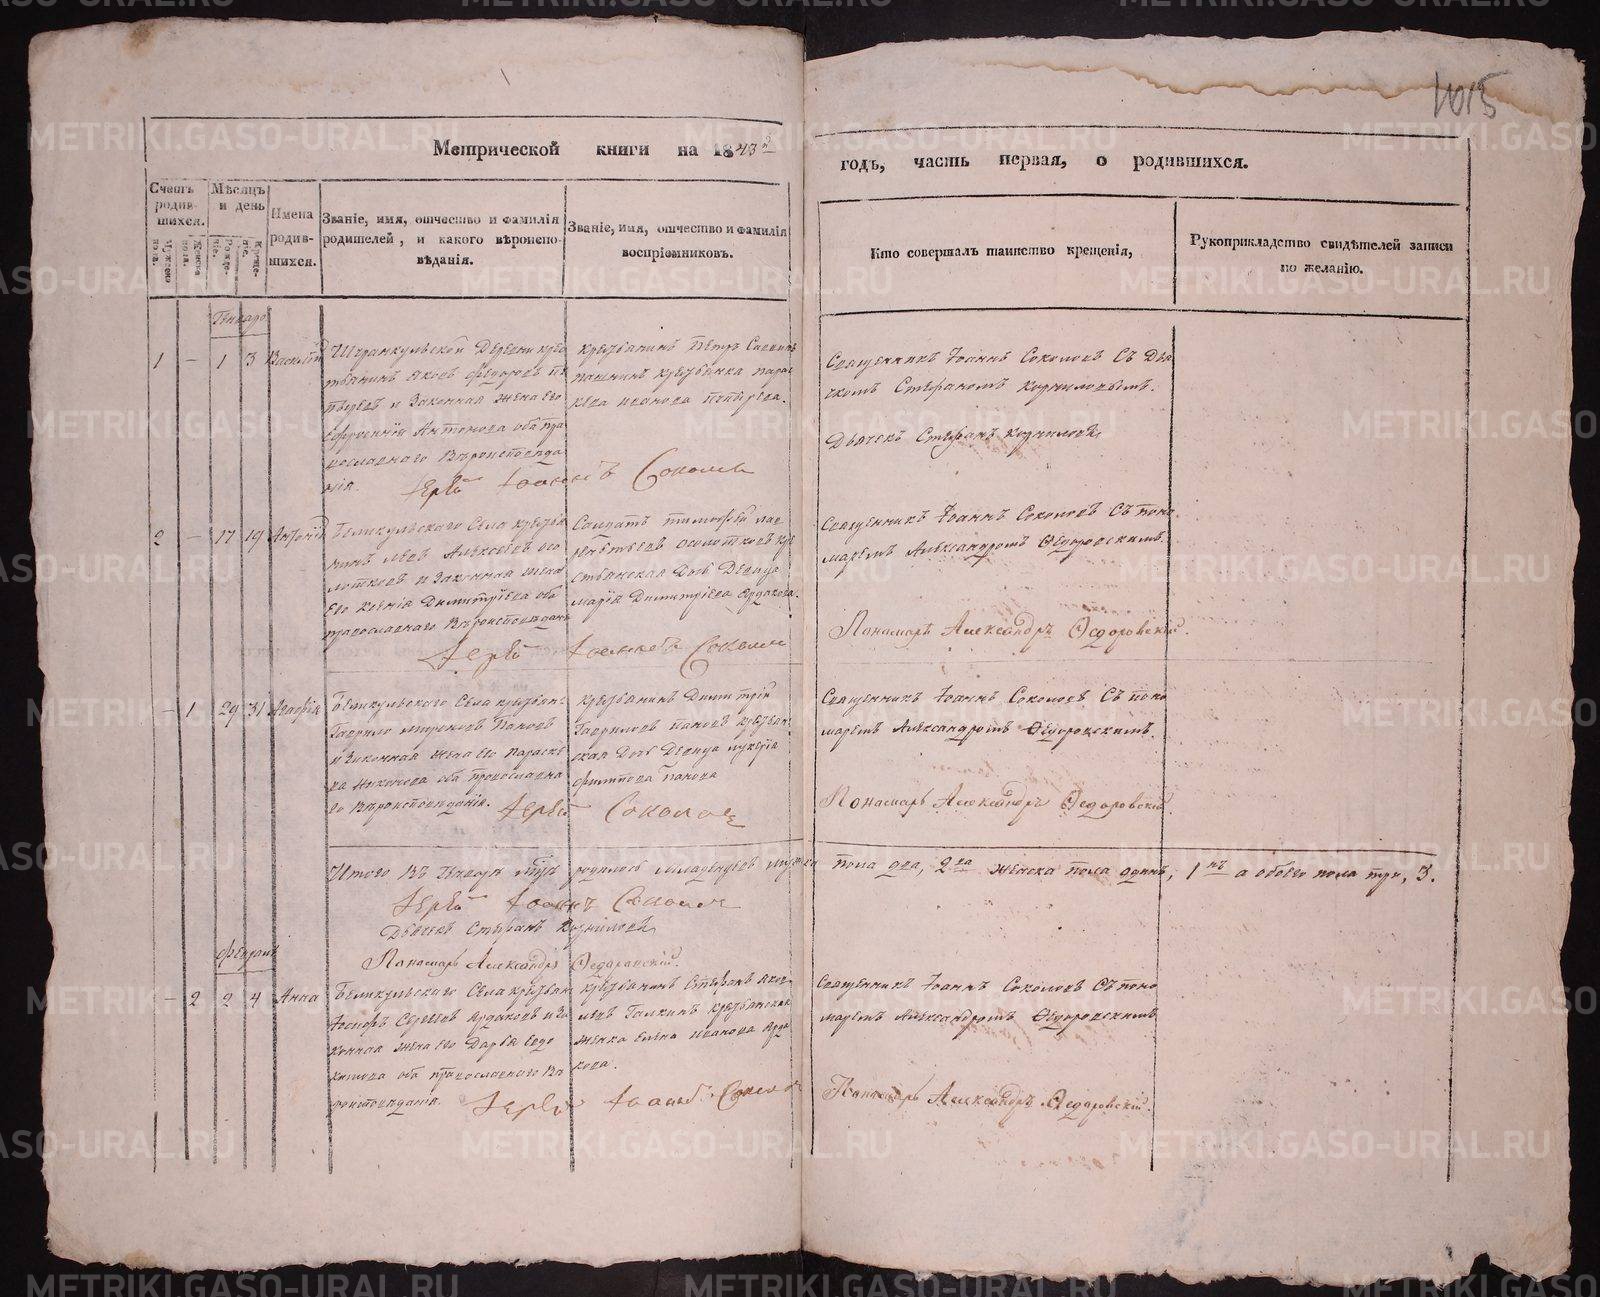 1015
Метрической книги на 1843й годъ, часть первая, о родившихся.
Счетъ родившихся.
Мужеска пола.
Женска пола.
Мѣсяцъ и день
Рожденіе.
Крещеніе.
Имена родившихся.
Званіе, имя, отчество и фамилія родителей, и какого вѣроисповѣданія.
Званіе, имя, отчество и фамилія воспріемниковъ.
Кто совершалъ таинство крещенія,
Рукоприкладство свидѣтелей записи по желанію.
Генваря
1 - 1 3 Василій
деревни крес
тьянинъ Яковъ Федоровъ
и законная жена его
Антонова оба пра
вославнаго вѣроисповѣда
нія.
крестьянинъ Петръ
крестьянка Парас
кева Иванова
Священникъ Іоаннъ Соколовъ съ дья
чкомъ Стефаномъ Корниловымъ.
Дьячекъ Стефанъ Корниловъ
Іерей Іоаннъ Соколовъ
2 - 17 19 Антоній
Беликульскаго села крестья
нинъ Левъ Алексѣевъ Осо
лотковъ и законная жена
его Ксенія Димитріева оба
православнаго вѣроисповѣдан
Солдатъ Тимофей Лав
рентьевъ Осолотковъ кре
стьянская дочь девица
Марія Димитріева Ярдакова.
Священникъ Іоаннъ Соколовъ съ поно
маремъ Александромъ Ѳедоровскимъ.
Пономарь Александръ Ѳедоровскій.
Іерей Іоаннъ Соколовъ
- 1 29 31 Агафія
Беликульскаго села крестьян
Гаврило Мироновъ Пановъ
и законная жена его Параске
ва Никонова оба православна
го вѣроисповѣданія.
крестьянинъ Димитрій
Гавриловъ Пановъ крестьян
ская дочь девица Лукерія
Филипова Панова
Священникъ Іоаннъ Соколовъ съ поно
маремъ Александромъ Ѳедоровскимъ.
Пономарь Александръ Ѳедоровскій
Іерей Соколовъ
Итого въ Генварѣ мцѣ родилось младенцевъ мужеска пола два, 2ва женска пола одинъ, 1нъ а обоего пола три, 3.
Іерей Іоаннъ Соколовъ
Дьячекъ Стефанъ Корниловъ
Пономарь Александръ Ѳедоровскій.
Февраля
- 2 2 4 Анна
Беликульскаго села крестьян
Сергеевъ Ярдаковъ и за
конная жена его Дарья Евдо
кимова оба православнаго вѣ
роисповѣданія.
крестьянинъ Стефанъ Яков
левъ Галкинъ крестьянская
женка Елена Иванова Ярда
кова.
Священникъ Іоаннъ Соколовъ съ поно
маремъ Александромъ Ѳедоровскимъ
Пономарь Александръ Ѳедоровскій.
Іерей Іоаннъ Соколовъ
METRIKI.GASO-URAL.RU